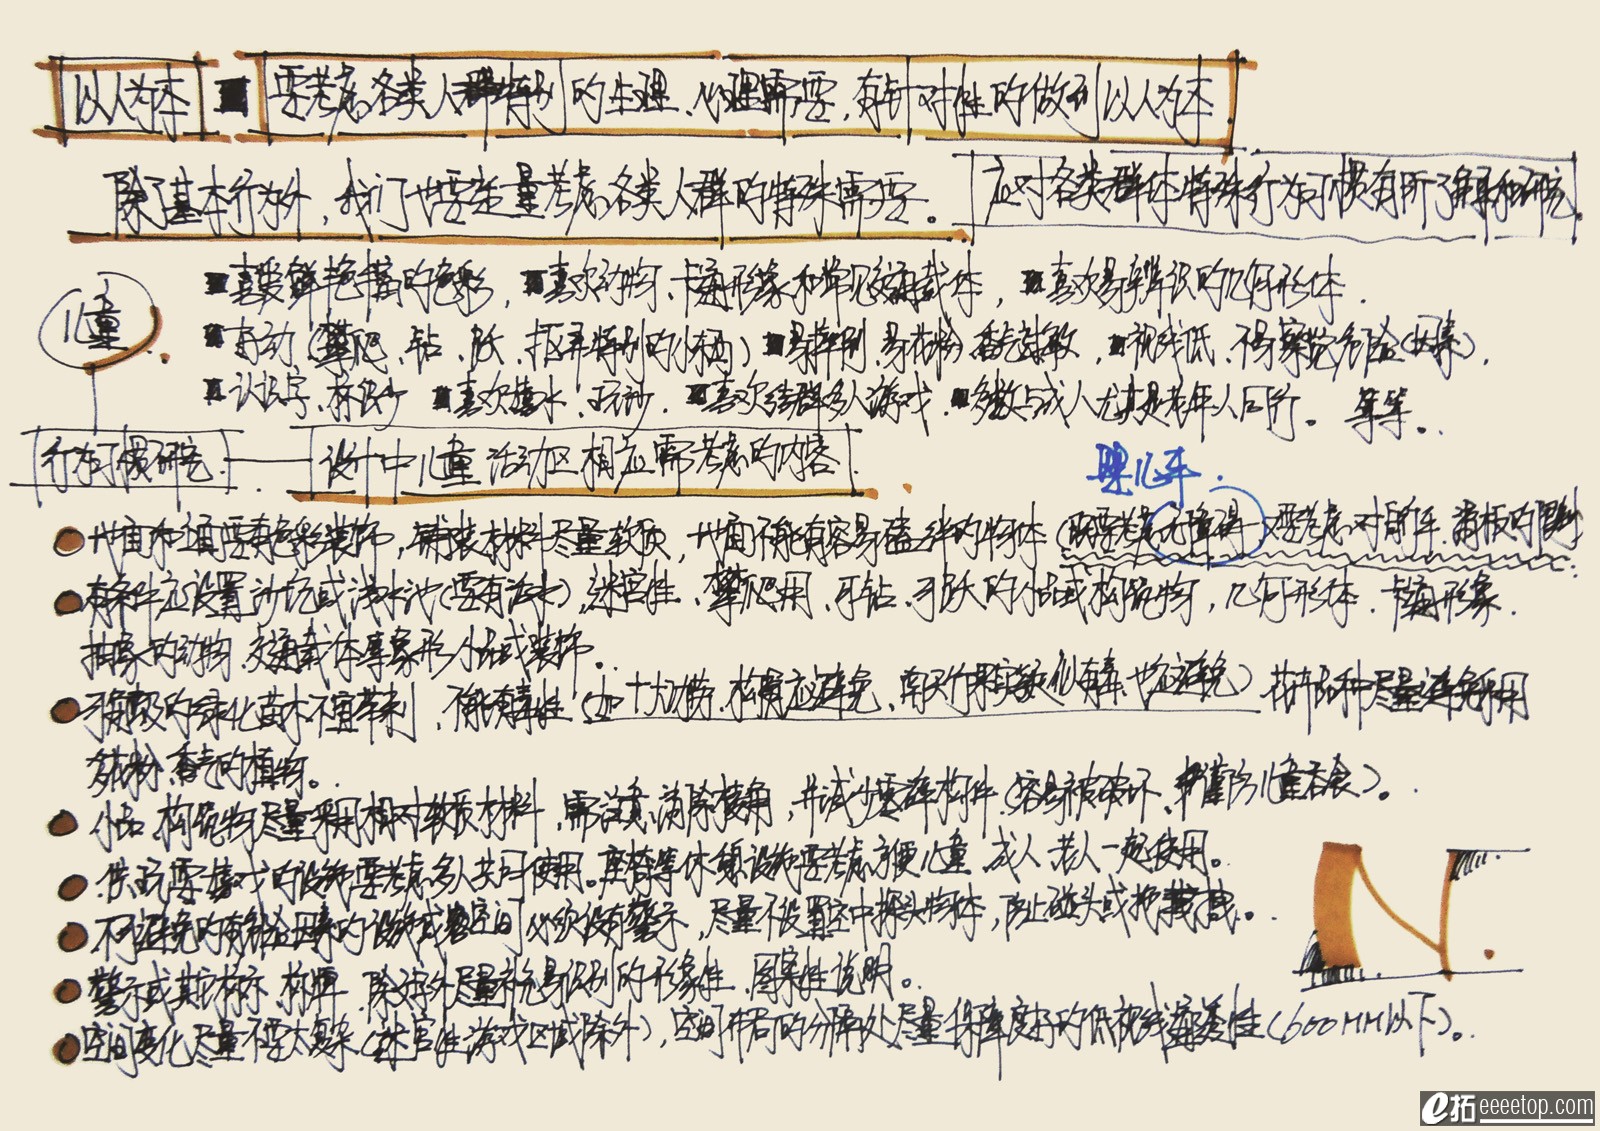 以人为本 ■ 要考虑各类人群特别的生理、心理需要,有针对性的做到以人为本
除了基本行为外,我们也要尽量考虑各类人群的特殊需要。应对各类群体特殊行为习惯有所了解和研究.
儿童
■喜爱鲜艳丰富的色彩, ■喜欢动物、卡通形象和常见交通载体, ■喜欢易辨识的几何形体.
■好动(攀爬、钻、跃、抠弄特别的小东西) ■易摔倒、易花粉、香气过敏, ■视线低、不易察觉危险(因素),
■认识字、标识少 ■喜欢嬉水、玩沙. ■喜欢结群多人游戏. ■多数与成人尤其是老年人同行。等等。
行为习惯研究 设计中儿童活动区相应需考虑的内容
婴儿车.
地面和立面要有色彩装饰,铺装材料尽量软质,地面不能有容易磕绊的物体(既要考虑无障碍 又要考虑对自行车、滑板的限制
有条件应设置沙坑或浅水池(要有活水),迷宫性、攀爬用、可钻、可跃的小品或构筑物,几何形体、卡通形象.
抽象的动物、交通载体等象形小品或装饰。
可触及的绿化苗木不宜带刺、不能有毒性(如十大功劳、枸骨应避免,南天竹果实疑似有毒、也应避免)花卉品种尽量避免采用
多花粉、香气的植物。
小品、构筑物尽量采用相对软质材料,需注意消除棱角,并减少零碎构件(容易被破坏、并谨防儿童吞食)。
供玩耍嬉戏的设施要考虑多人共同使用。座椅等休憩设施要考虑方便儿童、成人、老人一起使用。
不可避免的有危险因素的设施或空间必须设有警示,尽量不设置空中探头物体,防止碰头或抓戳。
警示或其它标示、标牌、除文字外尽量补充易识别的形象性、图案性说明。
空间变化尽量不要太复杂(迷宫性游戏区域除外),空间布局的分隔处尽量保障良好的低视线通透性(600MM以下)。
e拓 eeeetop.com